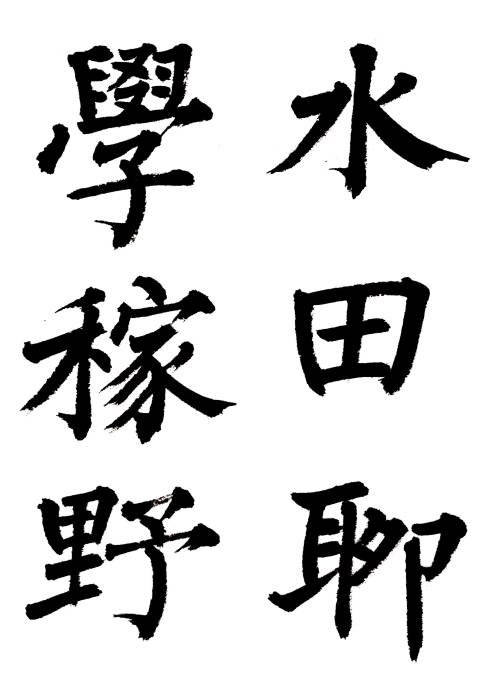 水田聊
學稼野